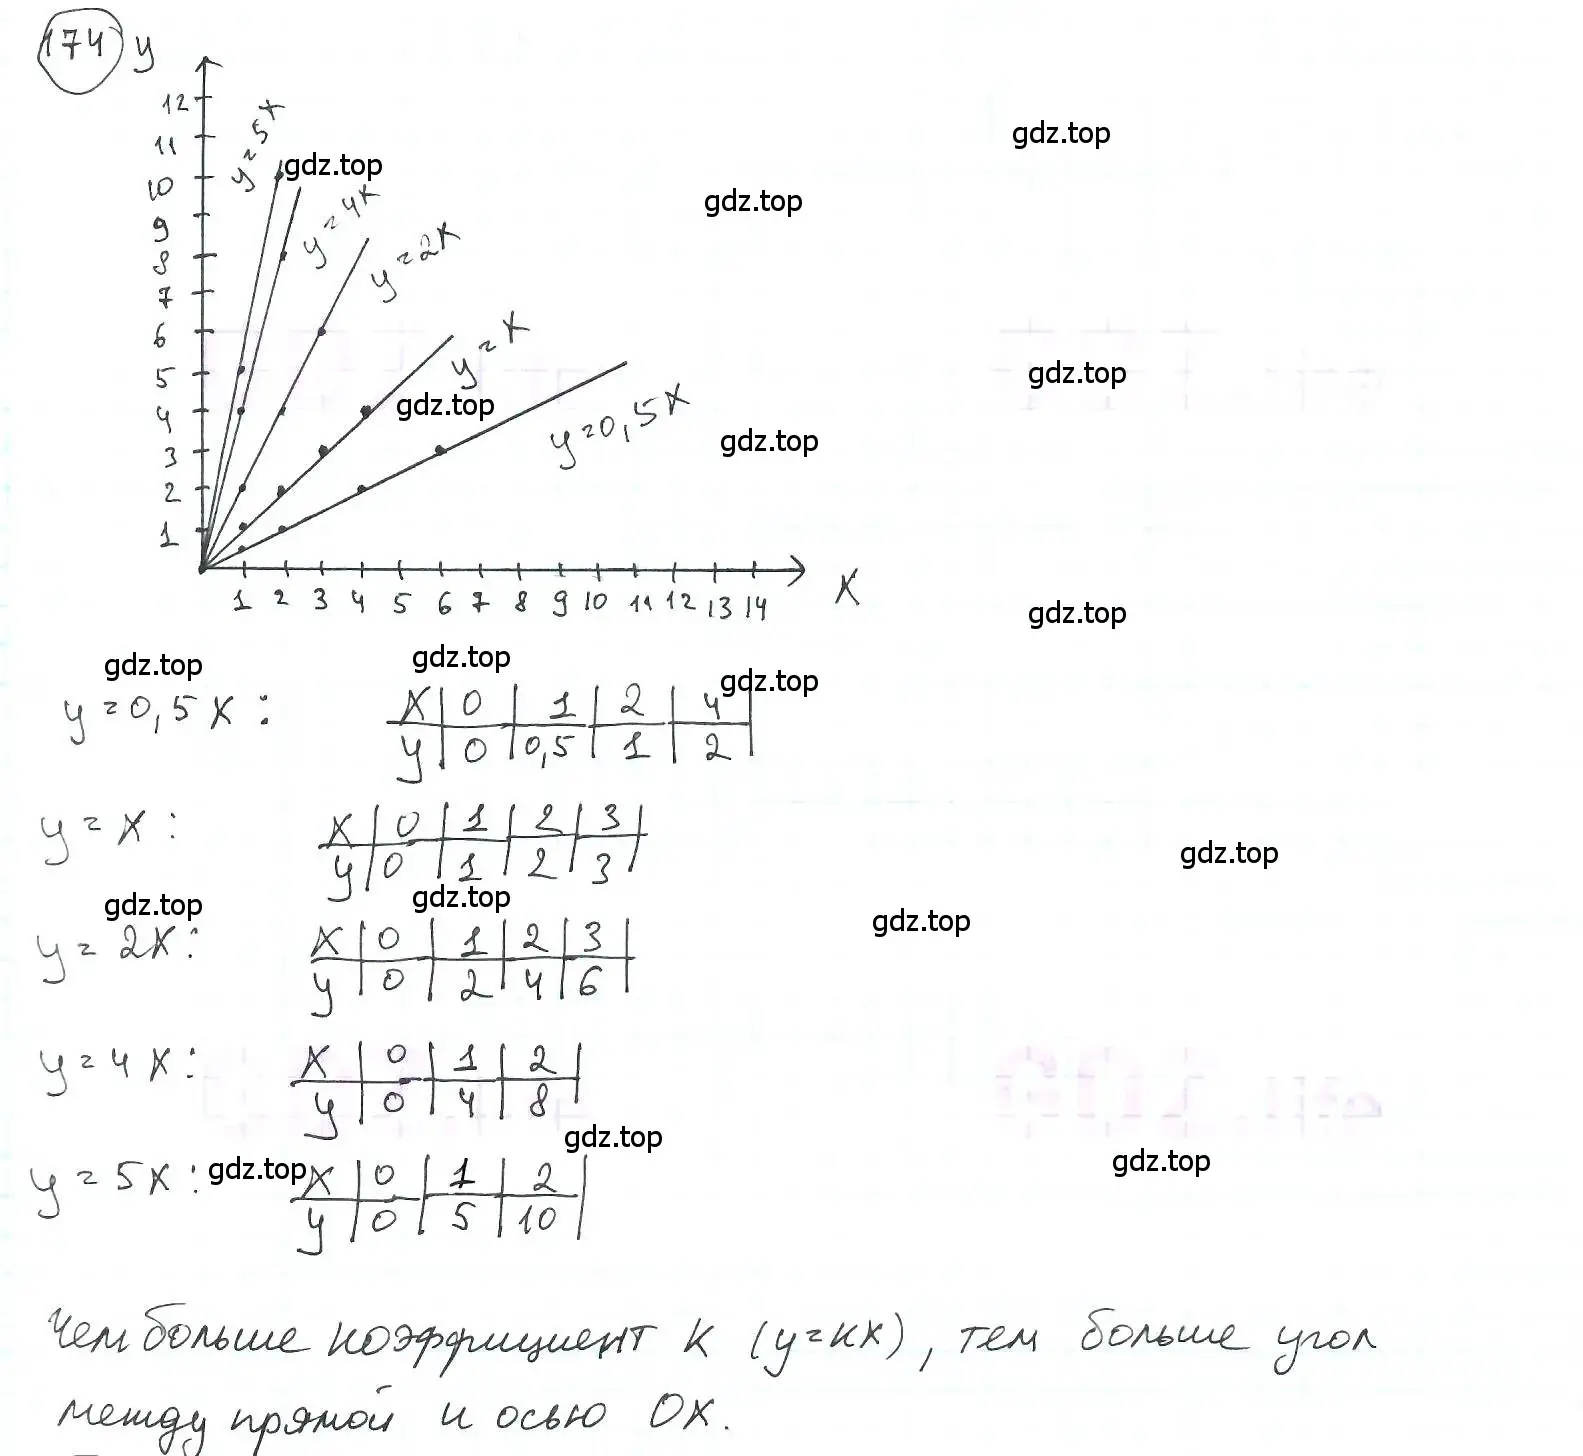 174 y
12
11
10
9
8
7
6
5
4
3
2
1
y=5x
y=4x
y=2x
y=x
y=0,5x
1 2 3 4 5 6 7 8 9 10 11 12 13 14
x
gdz.top
gdz.top
gdz.top
gdz.top
gdz.top
gdz.top
gdz.top
gdz.top
gdz.top
gdz.top
y=0,5x: x 0 1 2 4
y 0 0,5 1 2
y=x: x 0 1 2 3
y 0 1 2 3
gdz.top
gdz.top
gdz.top
gdz.top
y=2x: x 0 1 2 3
y 0 2 4 6
y=4x: x 0 1 2
y 0 4 8
gdz.top
gdz.top
gdz.top
y=5x: x 0 1 2
y 0 5 10
Чем больше коэффициент к (y=кx), тем больше угол
между прямой и осью Ох.